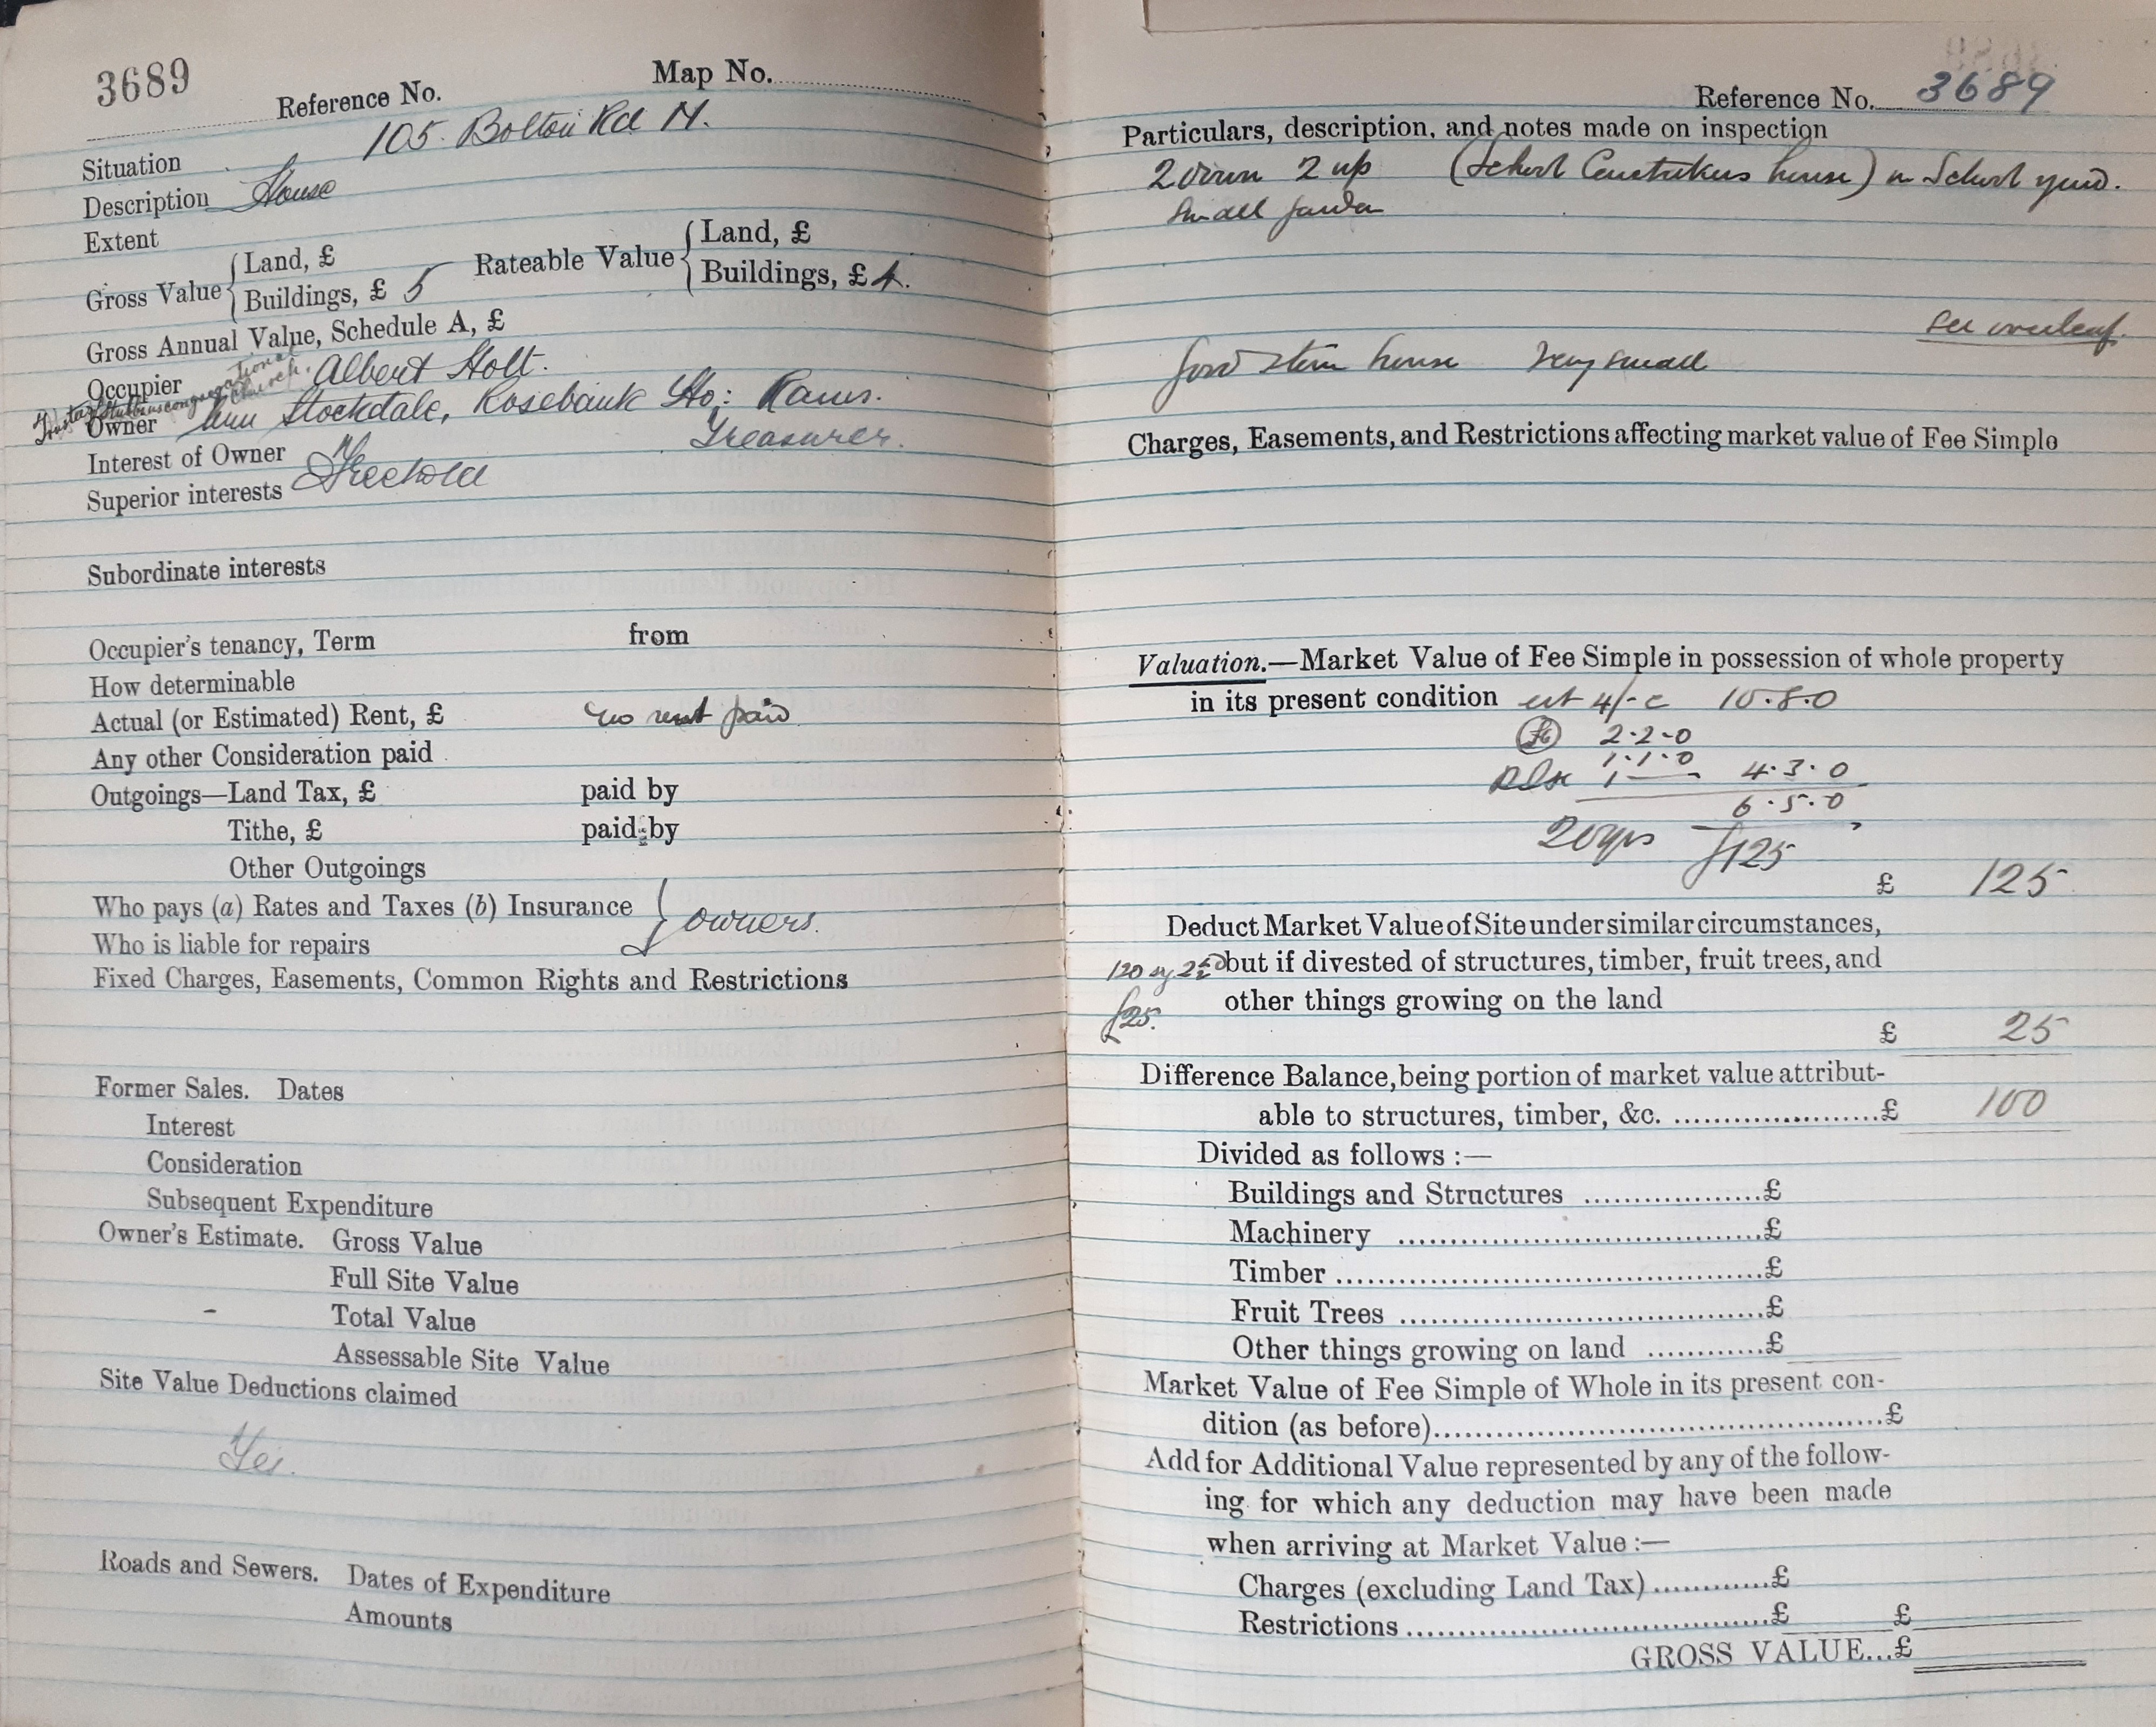 3689
Reference No.
Map No.
Situation 105 Bolton Rd N.
Description House
Extent
Gross Value { Land, £
Buildings, £ 5
Rateable Value { Land, £
Buildings, £ 4.
Gross Annual Value, Schedule A, £
Occupier Albert Holt.
Trustees Stubbins congregational Church.
Owner Stockdale, Rosebank Ho: Rams.
Treasurer.
Interest of Owner
Freehold
Superior interests
Subordinate interests
Occupier's tenancy, Term from
How determinable
Actual (or Estimated) Rent, £ no rent paid
Any other Consideration paid
Outgoings—Land Tax, £ paid by
Tithe, £ paid by
Other Outgoings
Who pays (a) Rates and Taxes (b) Insurance
Who is liable for repairs } owners.
Fixed Charges, Easements, Common Rights and Restrictions
Former Sales. Dates
Interest
Consideration
Subsequent Expenditure
Owner's Estimate. Gross Value
Full Site Value
Total Value
Assessable Site Value
Site Value Deductions claimed
Yes.
Roads and Sewers. Dates of Expenditure
Amounts
Reference No. 3689
Particulars, description, and notes made on inspection
2 down 2 up (School Caretakers house) in School yard.
Small garden
see overleaf.
good stone house very small
Charges, Easements, and Restrictions affecting market value of Fee Simple
Valuation.—Market Value of Fee Simple in possession of whole property
in its present condition est 4/- c 10.8.0
2.2.0
1.1.0
1.— 4.3.0
6.5.0
20 yrs £125
£ 125
Deduct Market Value of Site under similar circumstances,
120 sy
but if divested of structures, timber, fruit trees, and
£25.
other things growing on the land
£ 25
Difference Balance, being portion of market value attribut-
able to structures, timber, &c. ....................£ 100
Divided as follows :—
Buildings and Structures ..................£
Machinery ....................................£
Timber ..........................................£
Fruit Trees ....................................£
Other things growing on land ............£
Market Value of Fee Simple of Whole in its present con-
dition (as before)............................................£
Add for Additional Value represented by any of the follow-
ing for which any deduction may have been made
when arriving at Market Value :—
Charges (excluding Land Tax)............£
Restrictions ....................................£ £
GROSS VALUE...£